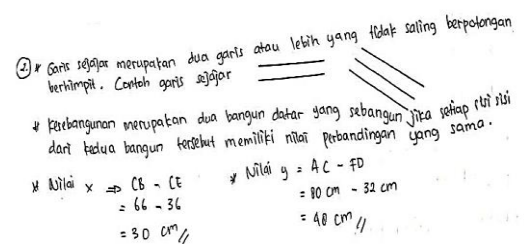 2. * Garis sejajar merupakan dua garis atau lebih yang tidak saling berpotongan
berhimpit. Contoh garis sejajar
* Kesebangunan merupakan dua bangun datar yang sebangun jika setiap sisi sisi
dari kedua bangun tersebut memiliki nilai perbandingan yang sama.
* Nilai x ⇒ CB - CE
= 66 - 36
= 30 cm //
* Nilai y = AC - FD
= 80 cm - 32 cm
= 48 cm //